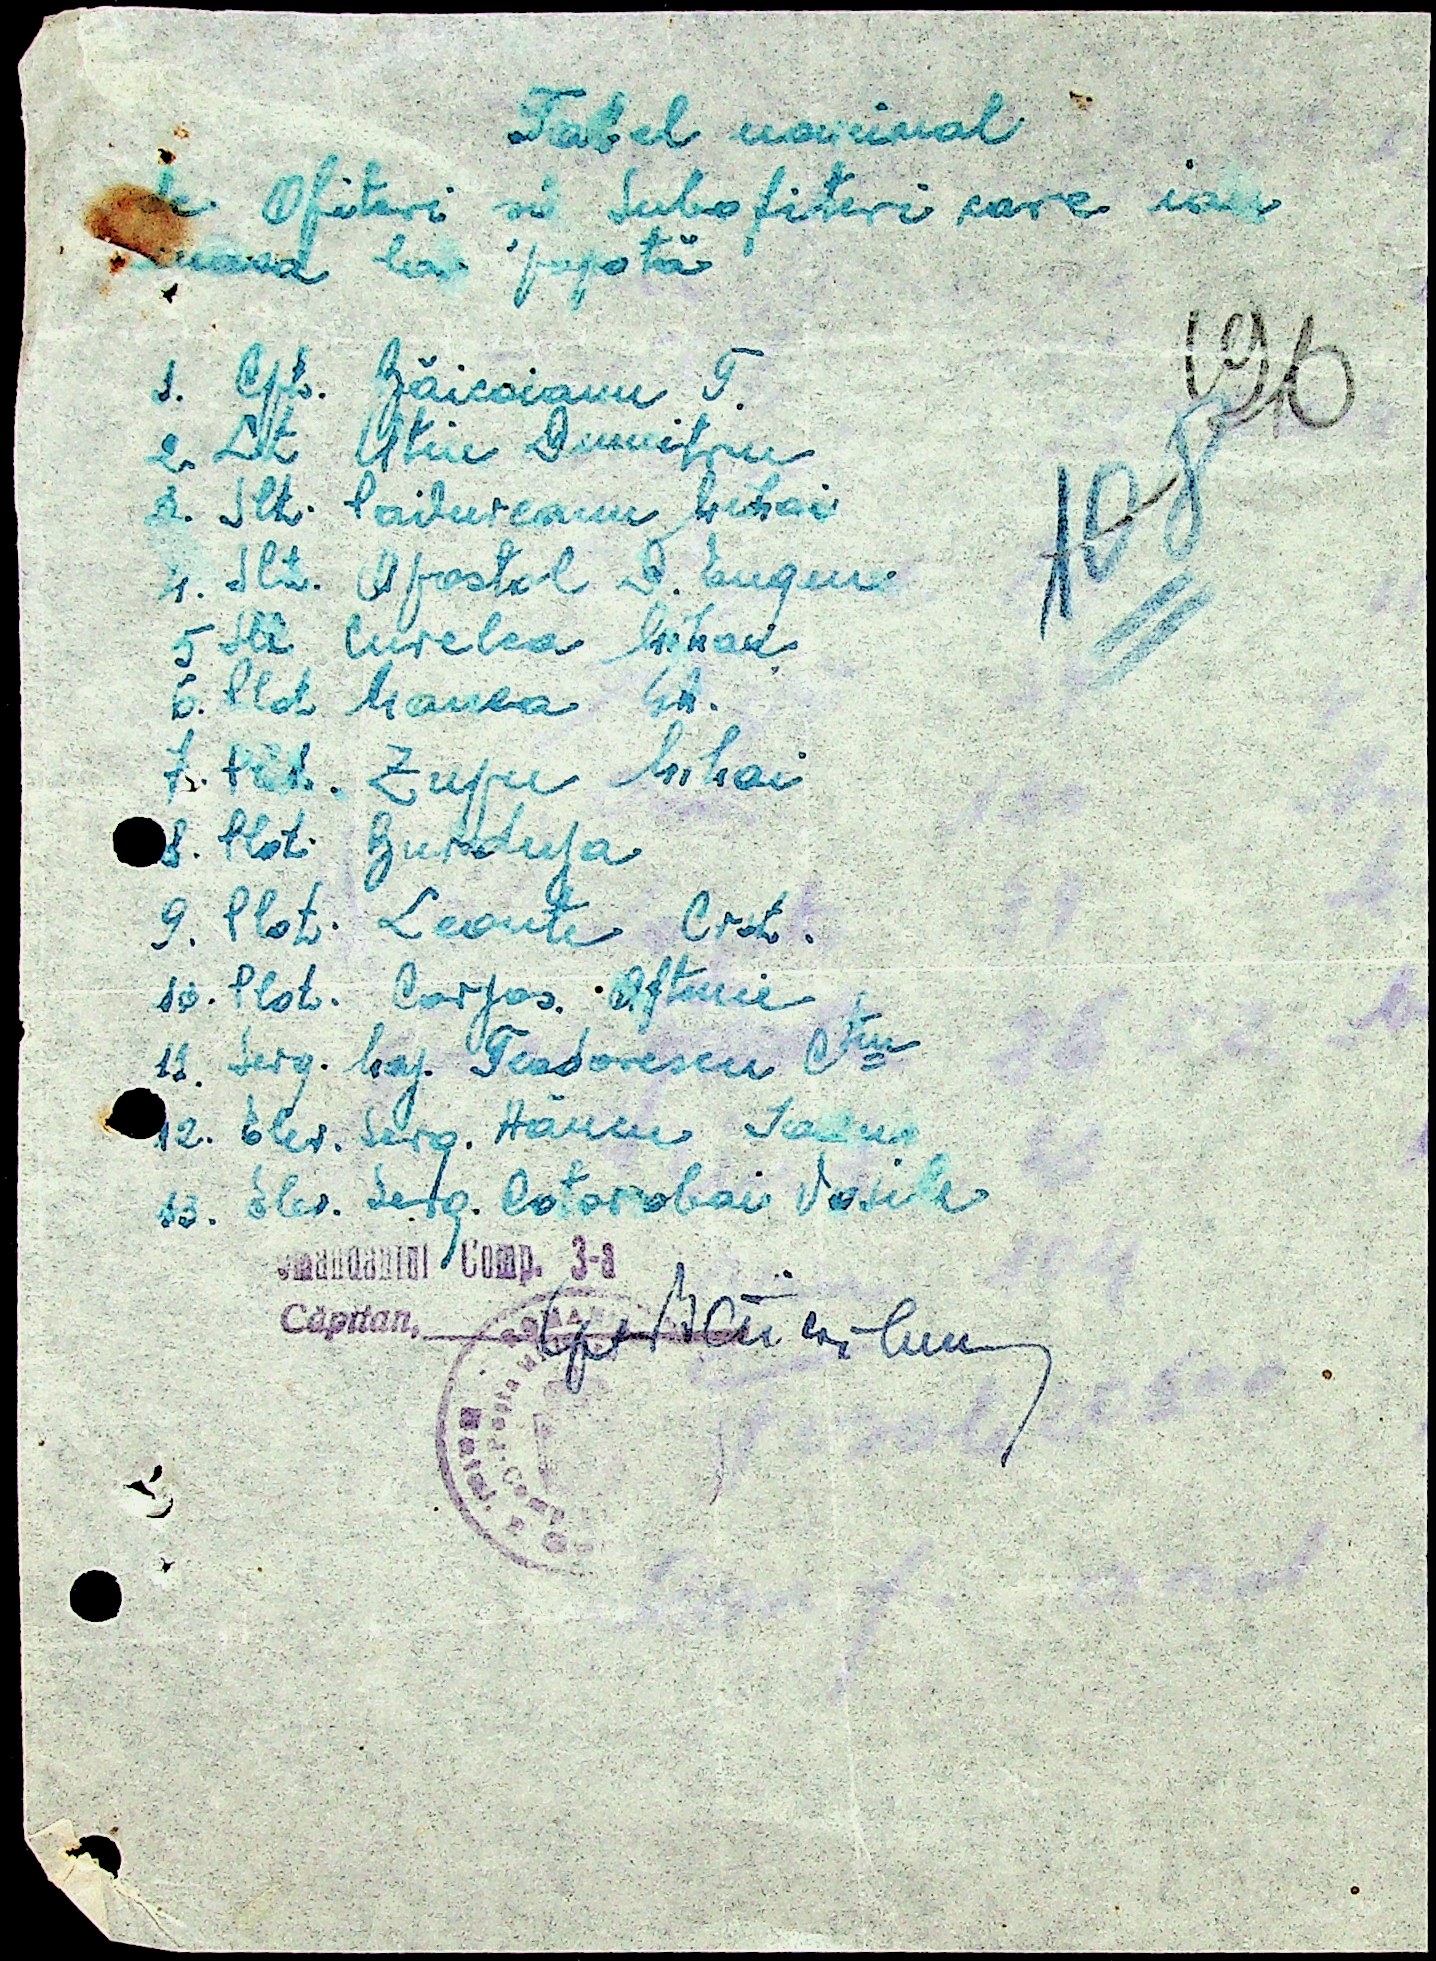 Tabel nominal
de Ofiteri si Subofiteri care iau
masa la popotă
196
108
1. Cpt. Băicoianu T.
2. Lt Utiu Dumitru
3. Slt. Paidureanu Mihai
4. Slt. Apostol D. Eugene
5 Slt Curelea Mihai
6. Plot Manea Gh.
7. Plot. Zupu Mihai
8. Plot. Burduja
9. Plot. Leonte Crst.
10. Plot. Carjos Eftimie
11. Serg. Maj. Teodorescu Ctin
12. Elev. Serg. Hâncu
13. Elev. Serg. Cotorobai Vasile
omandantul Comp. 3-a
Căpitan,
Cpt Băicoianu